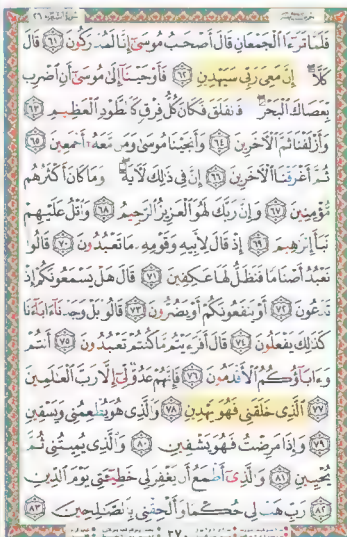 فَلَمَّا تَرَٰٓءَا ٱلْجَمْعَانِ قَالَ أَصْحَٰبُ مُوسَىٰٓ إِنَّا لَمُدْرَكُونَ ﴿٦١﴾ قَالَ
كَلَّآ إِنَّ مَعِىَ رَبِّى سَيَهْدِينِ ﴿٦٢﴾ فَأَوْحَيْنَآ إِلَىٰ مُوسَىٰٓ أَنِ ٱضْرِب
بِّعَصَاكَ ٱلْبَحْرَ فَٱنفَلَقَ فَكَانَ كُلُّ فِرْقٍ كَٱلطَّوْدِ ٱلْعَظِيمِ ﴿٦٣﴾
وَأَزْلَفْنَا ثَمَّ ٱلْءَاخَرِينَ ﴿٦٤﴾ وَأَنجَيْنَا مُوسَىٰ وَمَن مَّعَهُۥٓ أَجْمَعِينَ ﴿٦٥﴾
ثُمَّ أَغْرَقْنَا ٱلْءَاخَرِينَ ﴿٦٦﴾ إِنَّ فِى ذَٰلِكَ لَءَايَةً وَمَا كَانَ أَكْثَرُهُم
مُّؤْمِنِينَ ﴿٦٧﴾ وَإِنَّ رَبَّكَ لَهُوَ ٱلْعَزِيزُ ٱلرَّحِيمُ ﴿٦٨﴾ وَٱتْلُ عَلَيْهِمْ
نَبَأَ إِبْرَٰهِيمَ ﴿٦٩﴾ إِذْ قَالَ لِأَبِيهِ وَقَوْمِهِۦ مَا تَعْبُدُونَ ﴿٧٠﴾ قَالُوا۟
نَعْبُدُ أَصْنَامًا فَنَظَلُّ لَهَا عَٰكِفِينَ ﴿٧١﴾ قَالَ هَلْ يَسْمَعُونَكُمْ إِذْ
تَدْعُونَ ﴿٧٢﴾ أَوْ يَنفَعُونَكُمْ أَوْ يَضُرُّونَ ﴿٧٣﴾ قَالُوا۟ بَلْ وَجَدْنَآ ءَابَآءَنَا
كَذَٰلِكَ يَفْعَلُونَ ﴿٧٤﴾ قَالَ أَفَرَءَيْتُم مَّا كُنتُمْ تَعْبُدُونَ ﴿٧٥﴾ أَنتُمْ
وَءَابَآؤُكُمُ ٱلْأَقْدَمُونَ ﴿٧٦﴾ فَإِنَّهُمْ عَدُوٌّ لِّىٓ إِلَّا رَبَّ ٱلْعَٰلَمِينَ
﴿٧٧﴾ ٱلَّذِى خَلَقَنِى فَهُوَ يَهْدِينِ ﴿٧٨﴾ وَٱلَّذِى هُوَ يُطْعِمُنِى وَيَسْقِينِ
﴿٧٩﴾ وَإِذَا مَرِضْتُ فَهُوَ يَشْفِينِ ﴿٨٠﴾ وَٱلَّذِى يُمِيتُنِى ثُمَّ
يُحْيِينِ ﴿٨١﴾ وَٱلَّذِىٓ أَطْمَعُ أَن يَغْفِرَ لِى خَطِيٓـَٔتِى يَوْمَ ٱلدِّينِ
﴿٨٢﴾ رَبِّ هَبْ لِى حُكْمًا وَأَلْحِقْنِى بِٱلصَّٰلِحِينَ ﴿٨٣﴾